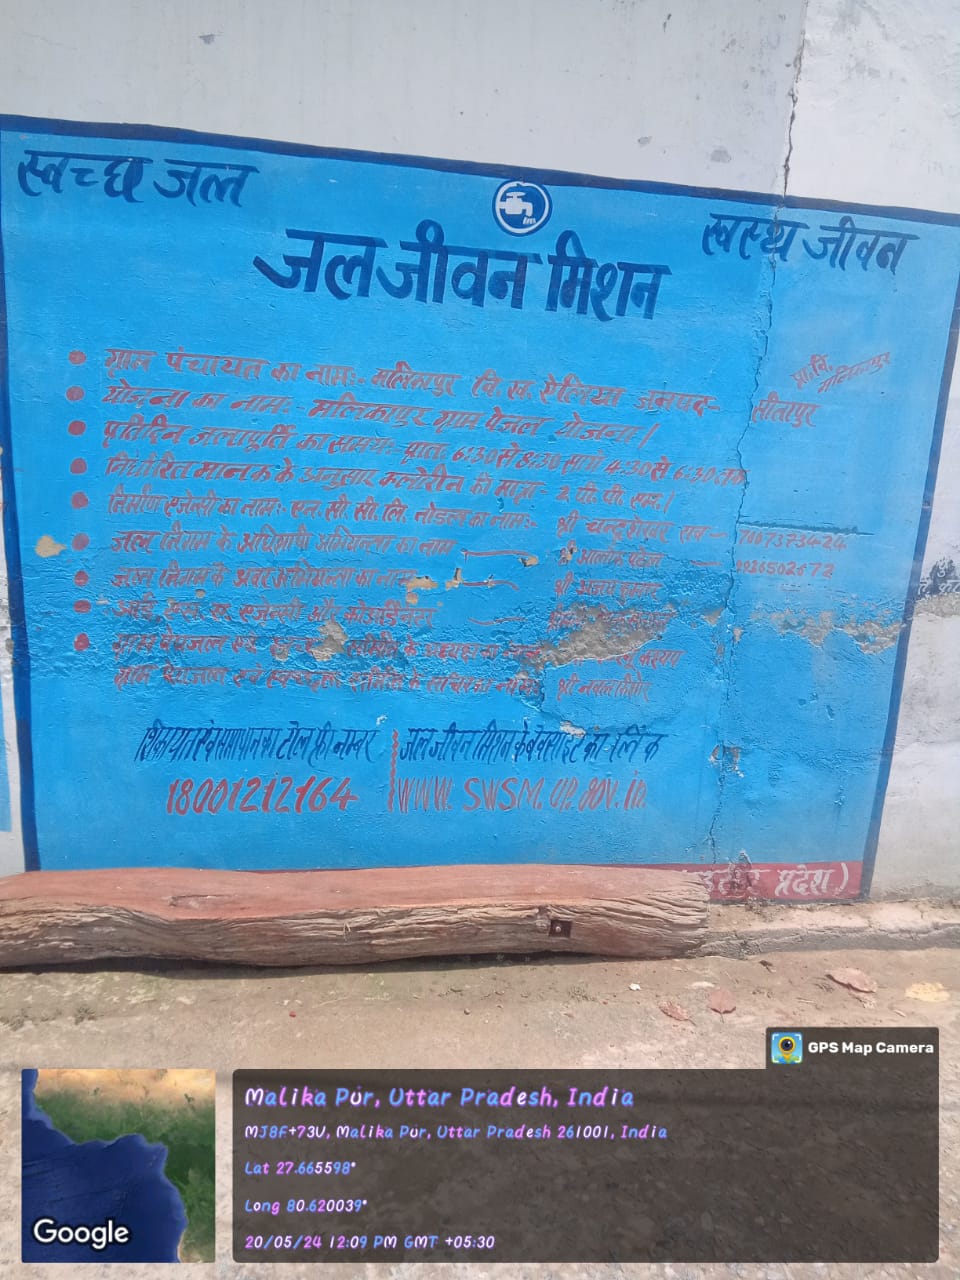 स्वच्छ जल
स्वस्थ जीवन
जल जीवन मिशन
ग्राम पंचायत का नाम:- मलिकापुर वि. ख. ऐलिया जनपद- सीतापुर
प्रा. वि. मलिकापुर
योजना का नाम:- मलिकापुर ग्राम पेजल योजना।
प्रतिदिन जलापूर्ति का समय:- प्रात: 6:30 से 8:30 सायं 4:30 से 6:30 तक
निर्धारित मानक के अनुसार कलोरीन की मात्रा- 2 पी. पी. एम.।
निर्माण एजेन्सी का नाम:- एन. सी. सी. लि. नोडल का नाम:- श्री चन्द्रशेखर राव - 7007373424
जल निगम के अधिशाषी अभियन्ता का नाम श्री आलोक पटेल
जल निगम के अवर अभियन्ता का नाम श्री अजय कुमार
आई. एस. ए. एजेन्सी और कोआर्डिनेटर
ग्राम पेयजल एवं स्वच्छता समिति के कश्यप
ग्राम पेयजल एवं स्वच्छता समिति के सचिव का नाम श्री
शिकायत एवं समाधान का टोल फ्री नम्बर
18001212164
जल जीवन मिशन के बेवसाइट का लिंक
www. SWSM. UP. gov. in
उत्तर प्रदेश)
GPS Map Camera
Malika Pur, Uttar Pradesh, India
MJ8F+73V, Malika Pur, Uttar Pradesh 261001, India
Lat 27.665598°
Long 80.620039°
20/05/24 12:09 PM GMT +05:30
Google